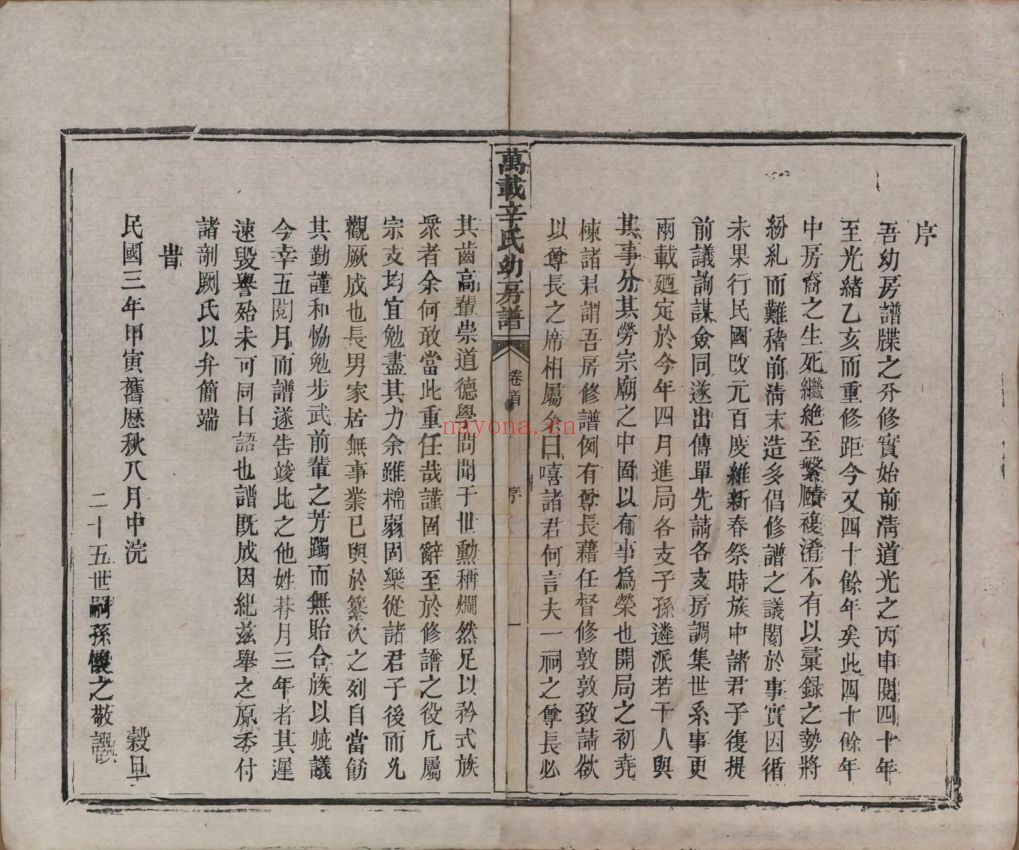 序
吾幼房譜牒之分修實始前淸道光之丙申閱四十年
至光緒乙亥而重修距今又四十餘年矣此四十餘年
中房裔之生死繼絕至繁賾複淆不有以彚錄之勢將
紛糺而難稽前淸末造多倡修譜之議閣於事實因循
未果行民國改元百度維新春祭時族中諸君子復提
前議詢謀僉同遂出傳單先請各支房調集世系事更
兩載廼定於今年四月進局各支子孫遴派若干人與
其事分其勞宗廟之中固以有事爲榮也開局之初堯
棟諸君謂吾房修譜例有尊長藉任督修敦敦致請欲
以尊長之席相屬余曰嘻諸君何言夫一祠之尊長必
萬載辛氏幼房譜
卷首
序
一
其齒高輩崇道德學問聞于世勳稱爛然足以矜式族
衆者余何敢當此重任哉謹固辭至於修譜之役凡屬
宗支均宜勉盡其力余雖棉弱固樂從諸君子後而允
觀厥成也長男家居無事業已與於纂次之列自當飭
其勤謹和恊勉步武前輩之芳躅而無貽合族以疵議
今幸五閱月而譜遂吿竣比之他姓朞月三年者其遲
速毀譽殆未可同日語也譜旣成因紀兹舉之原委付
諸剞劂氏以弁簡端
旹
民國三年甲寅舊歷秋八月中浣
穀旦
二十五世嗣孫懷之敬譔
nayona.cn